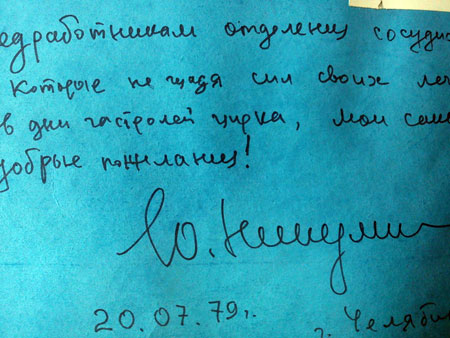 едработникам отделения сосудис
Которые не щадя сил своих леч
в дни гастролей цирка, мои сам
добрые пожелания!
Ю. Никулин
20.07.79г.
г. Челяби